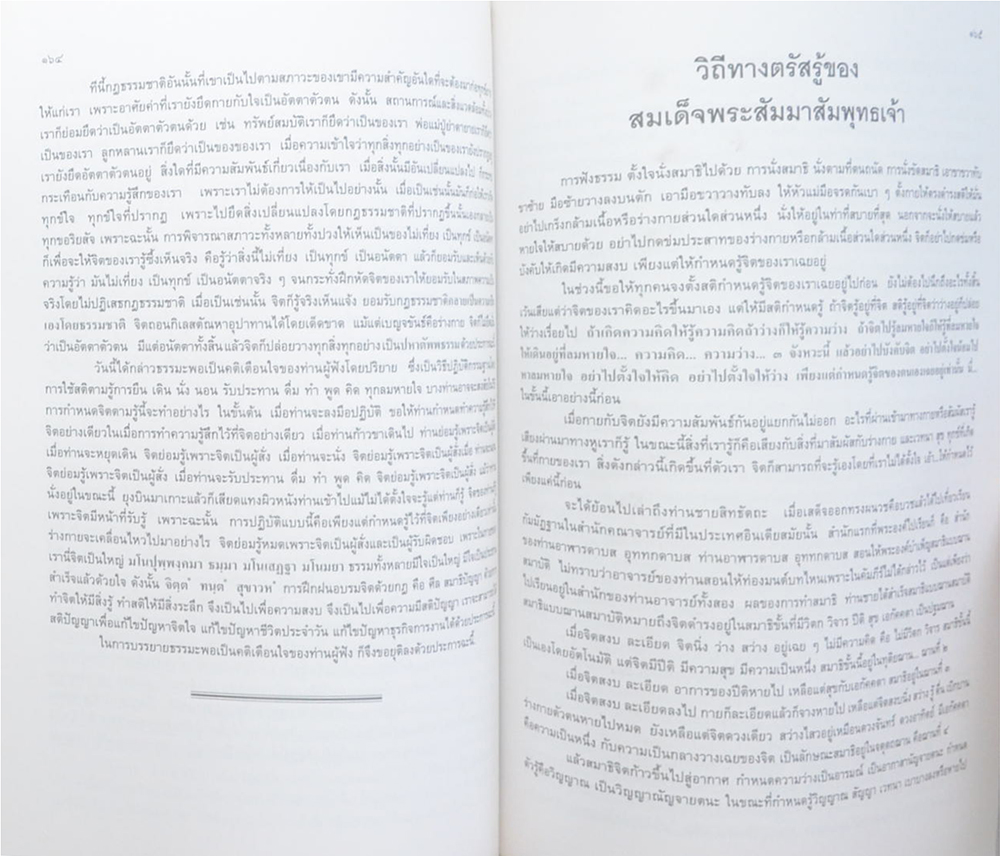 ๑๖๔
ทีนี้กฎธรรมชาติอันนั้นที่เขาเป็นไปตามสภาวะของเขามีความสำคัญอันใดที่จะต้องมา
ให้แก่เรา เพราะอาศัยค่าที่เรายังยึดกายกับใจเป็นอัตตาตัวตน ดังนั้น สถานการณ์และสิ่งแวดล้อม
เราก็ย่อมยึดว่าเป็นอัตตาตัวตนด้วย เช่น ทรัพย์สมบัติเราก็ยึดว่าเป็นของเรา พ่อแม่ปู่ย่าตายายเราก็ยึดว่า
เป็นของเรา ลูกหลานเราก็ยึดว่าเป็นของของเรา เมื่อความเข้าใจว่าทุกสิ่งทุกอย่างเป็นของเรายัง
เรายังยึดอัตตาตัวตนอยู่ สิ่งใดที่มีความสัมพันธ์เกี่ยวเนื่องกับเรา เมื่อสิ่งนั้นมีอันเปลี่ยนแปลงไป
กระเทือนกับความรู้สึกของเรา เพราะเราไม่ต้องการให้เป็นไปอย่างนั้น เมื่อเป็นเช่นนั้นมันก็
ทุกข์ใจ ทุกข์ใจที่ปรากฏ เพราะไปยึดสิ่งเปลี่ยนแปลงโดยกฎธรรมชาติที่ปรากฏขึ้นนั้น
ทุกขอริยสัจ เพราะฉะนั้น การพิจารณาสภาวะทั้งหลายทั้งปวงให้เห็นเป็นของไม่เที่ยง เป็นทุกข์ เป็นอนัตตา
ก็เพื่อจะให้จิตของเรารู้ซึ้งเห็นจริง คือรู้ว่าสิ่งนี้ไม่เที่ยง เป็นทุกข์ เป็นอนัตตา แล้วก็ยอมรับ
ความรู้ว่า มันไม่เที่ยง เป็นทุกข์ เป็นอนัตตาจริง ๆ จนกระทั่งฝึกหัดจิตของเราให้ยอมรับในสภาพความเป็น
จริงโดยไม่ปฏิเสธกฎธรรมชาติ เมื่อเป็นเช่นนั้น จิตก็รู้จริงเห็นแจ้ง ยอมรับกฎธรรมชาติ
เองโดยธรรมชาติ จิตถอนกิเลสตัณหาอุปาทานได้โดยเด็ดขาด แม้แต่เบญจขันธ์คือร่างกาย จิตก็ไม่
ว่าเป็นอัตตาตัวตน มีแต่อนัตตาทั้งสิ้นแล้วจิตก็ปล่อยวางทุกสิ่งทุกอย่างเป็น
วันนี้ได้กล่าวธรรมะพอเป็นคติเตือนใจของท่านผู้ฟังโดยปริยาย ซึ่งเป็นวิธีปฏิบัติกรรมฐาน
การใช้สติตามรู้การยืน เดิน นั่ง นอน รับประทาน ดื่ม ทำ พูด คิด ทุกลมหายใจ บางท่านอาจจะสงสัย
การกำหนดจิตตามรู้นี้จะทำอย่างไร ในขั้นต้น เมื่อท่านจะลงมือปฏิบัติ ขอให้ท่านกำหนดทำความรู้สึกไว้
จิตอย่างเดียวในเมื่อการทำความรู้สึกไว้ที่จิตอย่างเดียว เมื่อท่านก้าวขาเดินไป ท่านย่อมรู้เพราะจิตเป็นผู้สั่ง
เมื่อท่านจะหยุดเดิน จิตย่อมรู้เพราะจิตเป็นผู้สั่ง เมื่อท่านจะนั่ง จิตย่อมรู้เพราะจิตเป็นผู้สั่ง เมื่อ
จิตย่อมรู้เพราะจิตเป็นผู้สั่ง เมื่อท่านจะรับประทาน ดื่ม ทำ พูด คิด จิตย่อมรู้เพราะจิตเป็นผู้สั่ง แม้ว่าท่าน
นั่งอยู่ในขณะนี้ ยุงบินมาเกาะแล้วก็เสียดแทงผิวหนังท่านเข้าไปแม้ไม่ได้ตั้งใจจะรู้แต่ท่านก็รู้
เพราะจิตมีหน้าที่รับรู้ เพราะฉะนั้น การปฏิบัติแบบนี้คือเพียงแต่กำหนดรู้ไว้ที่จิตเพียงอย่างเดียว
ร่างกายจะเคลื่อนไหวไปมาอย่างไร จิตย่อมรู้หมดเพราะจิตเป็นผู้สั่งและเป็นผู้รับผิดชอบ เพราะในกาย
เรานี่จิตเป็นใหญ่ มโนปุพฺพงฺคมา ธมฺมา มโนเสฏฺฐา มโนมยา ธรรมทั้งหลายมีใจเป็นใหญ่ มีใจเป็นประธาน
สำเร็จแล้วด้วยใจ ดังนั้น จิตฺตํ ทนฺตํ สุขาวหํ การฝึกฝนอบรมจิตด้วยกฎ คือ ศีล สมาธิปัญญา
ทำจิตให้มีสิ่งรู้ ทำสติให้มีสิ่งระลึก จึงเป็นไปเพื่อความสงบ จึงเป็นไปเพื่อความมีสติปัญญา เราจะสามารถใช้
สติปัญญาเพื่อแก้ไขปัญหาจิตใจ แก้ไขปัญหาชีวิตประจำวัน แก้ไขปัญหาธุรกิจการงานได้ด้วยประการฉะนี้
ในการบรรยายธรรมะพอเป็นคติเตือนใจของท่านผู้ฟัง ก็จึงขอยุติลงด้วยประการฉะนี้
วิถีทางตรัสรู้ของ
สมเด็จพระสัมมาสัมพุทธเจ้า
การฟังธรรม ตั้งใจนั่งสมาธิไปด้วย การนั่งสมาธิ นั่งตามที่ตนถนัด การนั่งขัดสมาธิ เอาขาขวาทับ
ขาซ้าย มือซ้ายวางลงบนตัก เอามือขวาวางทับลง ให้หัวแม่มือจรดกันเบา ๆ ตั้งกายให้ตรงดำรงสติให้มั่น
อย่าไปเกร็งกล้ามเนื้อหรือร่างกายส่วนใดส่วนหนึ่ง นั่งให้อยู่ในท่าที่สบายที่สุด นอกจากจะนั่งให้สบายแล้ว
หายใจให้สบายด้วย อย่าไปกดข่มประสาทของร่างกายหรือกล้ามเนื้อส่วนใดส่วนหนึ่ง จิตก็อย่าไปข่มหรือ
บังคับให้เกิดมีความสงบ เพียงแต่ให้กำหนดรู้จิตของเราเฉยอยู่
ในช่วงนี้ขอให้ทุกคนจงตั้งสติกำหนดรู้จิตของเราเฉยอยู่ไปก่อน ยังไม่ต้องไปนึกถึงอะไรทั้งสิ้น
เว้นเสียแต่ว่าจิตของเราคิดอะไรขึ้นมาเอง แต่ให้มีสติกำหนดรู้ ถ้าจิตรู้อยู่ที่จิต สติรู้อยู่ที่จิตว่าว่างอยู่ก็ปล่อย
ให้ว่างเรื่อยไป ถ้าเกิดความคิดให้รู้ความคิดถ้าว่างก็ให้รู้ความว่าง ถ้าจิตไปรู้ลมหายใจก็ให้รู้ที่ลมหายใจ
ให้เดินอยู่ที่ลมหายใจ... ความคิด... ความว่าง... ๓ จังหวะนี้ แล้วอย่าไปบังคับจิต อย่าไปตั้งใจน้อมไป
หาลมหายใจ อย่าไปตั้งใจให้คิด อย่าไปตั้งใจให้ว่าง เพียงแต่กำหนดรู้จิตของตนเองเฉยอยู่เท่านั้น นี่...
ในขั้นนี้เอาอย่างนี้ก่อน
เมื่อกายกับจิตยังมีความสัมพันธ์กันอยู่แยกกันไม่ออก อะไรที่ผ่านเข้ามาทางกายหรือสัมผัสเรารู้
เสียงผ่านมาทางหูเราก็รู้ ในขณะนี้สิ่งที่เรารู้ก็คือเสียงกับสิ่งที่มาสัมผัสกับร่างกาย และเวทนา สุข ทุกข์ที่เกิด
ขึ้นที่กายของเรา สิ่งดังกล่าวนี้เกิดขึ้นที่ตัวเรา จิตก็สามารถที่จะรู้เองโดยที่เราไม่ได้ตั้งใจ เอ้า..ให้กำหนดไว้
เพียงแค่นี้ก่อน
จะได้ย้อนไปเล่าถึงท่านชายสิทธัตถะ เมื่อเสด็จออกทรงผนวชคือบวชแล้วได้ไปเที่ยวเรียน
กัมมัฏฐานในสำนักคณาจารย์ที่มีในประเทศอินเดียสมัยนั้น สำนักแรกที่พระองค์ไปเรียนก็ คือ สำนัก
ของท่านอาฬารดาบส อุททกดาบส ท่านอาฬารดาบส อุททกดาบส สอนให้พระองค์บำเพ็ญสมาธิแบบฌาน
สมาบัติ ไม่ทราบว่าอาจารย์ของท่านสอนให้ท่องมนต์บทไหนเพราะในคัมภีร์ไม่ได้กล่าวไว้ เป็นแต่เพียงว่า
ไปเรียนอยู่ในสำนักของท่านอาจารย์ทั้งสอง ผลของการทำสมาธิ ท่านชายได้สำเร็จสมาธิแบบฌานสมาบัติ
สมาธิแบบฌานสมาบัติหมายถึงจิตดำรงอยู่ในสมาธิขั้นที่มีวิตก วิจาร ปีติ สุข เอกัคคตา เป็นปฐมฌาน
เมื่อจิตสงบ ละเอียด จิตนิ่ง ว่าง สว่าง อยู่เฉย ๆ ไม่มีความคิด คือ ไม่มีวิตก วิจาร สมาธิขั้นนี้
เป็นเองโดยอัตโนมัติ แต่จิตมีปีติ มีความสุข มีความเป็นหนึ่ง สมาธิขั้นนี้อยู่ในทุติยฌาน... ฌานที่ ๒
เมื่อจิตสงบ ละเอียด อาการของปีติหายไป เหลือแต่สุขกับเอกัคคตา สมาธิอยู่ในฌานที่ ๓
เมื่อจิตสงบ ละเอียดลงไป กายก็ละเอียดแล้วก็จางหายไป เหลือแต่จิตสงบนิ่ง สว่าง รู้ ตื่น เบิกบาน
ร่างกายตัวตนหายไปหมด ยังเหลือแต่จิตดวงเดียว สว่างไสวอยู่เหมือนดวงจันทร์ ดวงอาทิตย์ มีเอกัคคตา
คือความเป็นหนึ่ง กับความเป็นกลางวางเฉยของจิต เป็นลักษณะสมาธิอยู่ในจตุตถฌาน คือฌานที่ ๔
แล้วสมาธิจิตก้าวขึ้นไปสู่อากาศ กำหนดความว่างเป็นอารมณ์ เป็นอากาสานัญจายตนะ กำหนด
ตัวรู้คือวิญญาณ เป็นวิญญาณัญจายตนะ ในขณะที่กำหนดรู้วิญญาณ สัญญา เวทนา เบาบางลงหรือหายไป